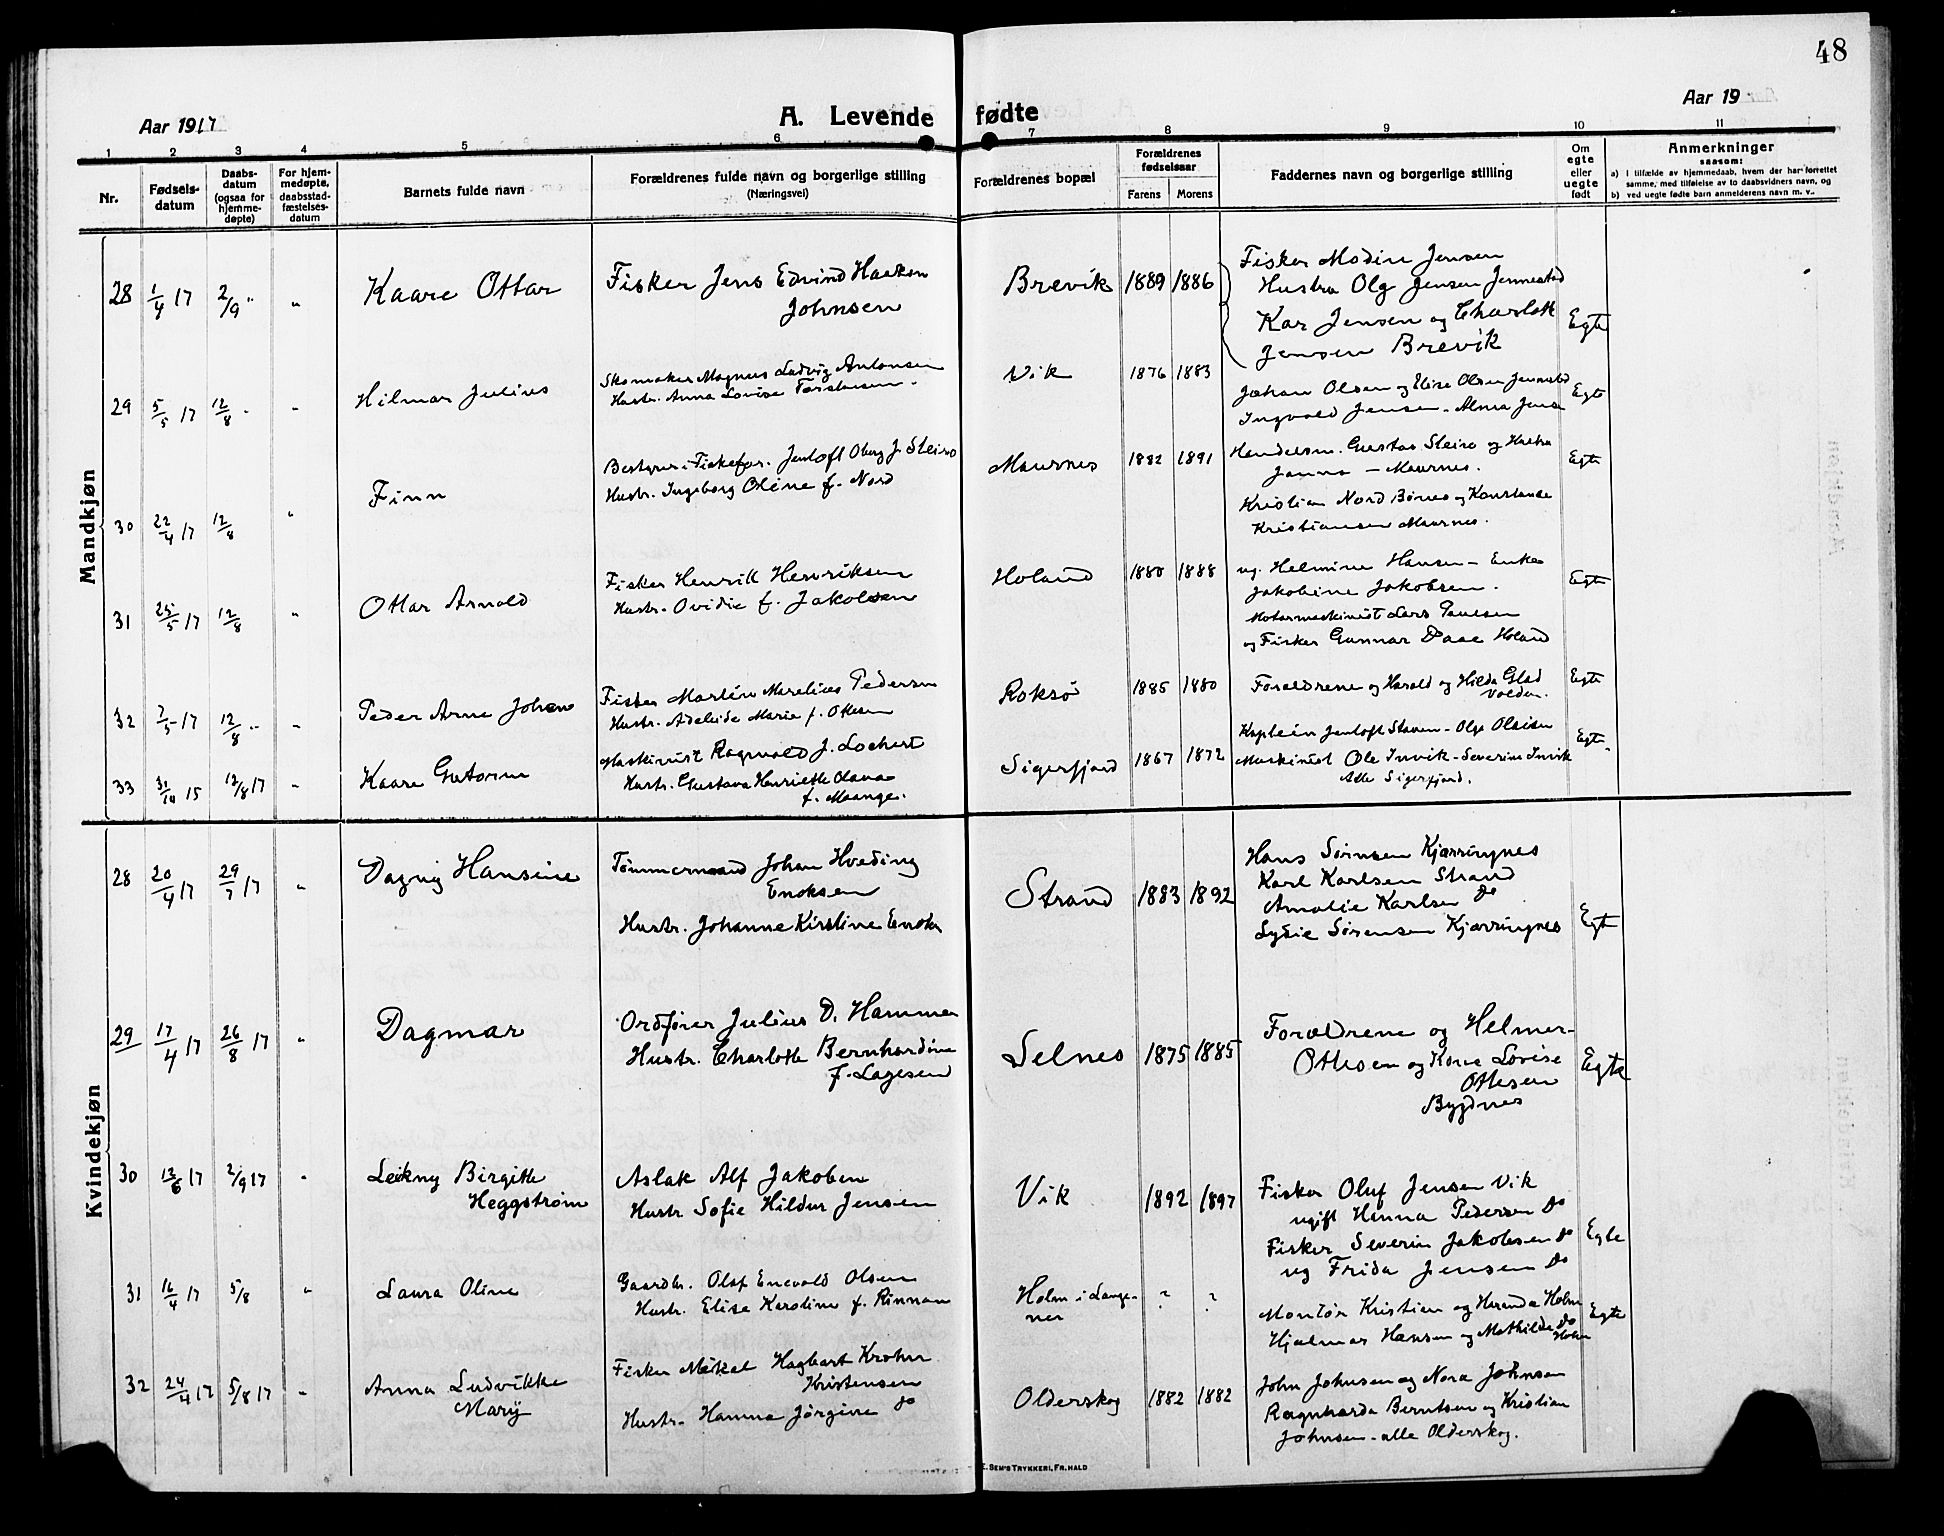 48
Aar 1917
A. Levende fødte
Aar 19
1 2 3 4 5 6 7 8 9 10 11
Nr.
Fødsels-
datum
Daabs-
datum
(ogsaa for
hjemme-
døpte)
For hjem-
medøpte,
daabsstad-
fæstelses-
datum
Barnets fulde navn
Forældrenes fulde navn og borgerlige stilling
(Næringsvei)
Forældrenes bopæl
Forældrenes
fødselsaar
Farens Morens
Faddernes navn og borgerlige stilling
Om
egte
eller
uegte
født
Anmerkninger
saasom:
a) I tilfælde av hjemmedaab, hvem der har forrettet
samme, med tilføielse av to daabsvidners navn, og
b) ved uegte fødte barn anmelderens navn m. v..
Mandkjøn
28 1/4 17 2/9 " "
Kaare Ottar
Fisker Jens Edvind Haakon
Johnsen
Brevik 1889 1886
Fisker Modin Jensen
Hustru Olg Jensen Jennestad
Kar Jensen og Charlott
Jensen Brevik
Egte
29 5/5 17 12/8 " "
Hilmar Julius
Skomaker Magnus Ludvig Antonsen
Hustr. Anna Lovise
Vik 1876 1883
Johan Olsen og Elise Olsen Jennestad
Ingvald Jensen - Alma Jensen
Egte
30 22/4 17 12/8 "
Finn
Bestyrer i Fiskefor. Jentoft Oberg J. Steiro
Hustr. Ingeborg Oline f. Nord
Maurnes 1882 1891
Handelsm. Gustav Steiro og Hustru
Janna - Maurnes.
Kristian Nord Bønes og Konstanse
Kristiansen Maurnes.
Egte
31 25/5 17 12/8 "
Ottar Arnold
Fisker Henrik Henriksen
Hustr. Ovidie f. Jakobsen
Holand 1880 1888
ug. Helmine Hansen - Enke
Jakobine Jakobsen.
Motormaskinist Lars Paulsen
og Fisker Gunnar Daae Holand
Egte
32 7/5 17 12/8 " "
Peder Arne Johan
Fisker Martin Marelius Pedersen
Hustr. Adeleide Marie f. Ottesen
Roksø 1885 1880
Forældrene og Harald og Hilda Glad
Volden.
Egte
33 31/10 15 12/8 17 "
Kaare Gutorm
Maskinist Ragnvald J. Lochert
Hustr. Gustava Henriette Olava
f. Maange.
Sigerfjord 1867 1872
Kaptein Jentoft Staven - Olga Olsen
Maskinist Ole Invik - Severine Invik
Alle Sigerfjord.
Egte
Kvindekjøn
28 20/4 17 29/7 17 "
Dagny Hansine
Tømmermand Johan Hveding
Enoksen
Hustr. Johanne Kirstine Enoks
Strand 1883 1892
Hans Sørnsen Kjærringnes
Karl Karlsen Strand
Amalie Karlsen do
Lydie Sørensen Kjærringnes
Egt
29 17/4 17 26/8 17 "
Dagmar
Ordfører Julius D. Hammer
Hustr. Charlotte Bernhardine
f. Lagesen
Selnes 1875 1885
Forældrene og Helmer
Ottesen og Kaia Lovise
Ottesen
Bygdnes
Egte
30 13/6 17 2/9 17 "
Leikny Birgitte
Heggstrøm
Aslak Alf Jakobsen
Hustr Sofie Hildur Jensen
Vik 1892 1897
Fisker Oluf Jensen Vik
ugift Hanna Pedersen do
Fisker Severin Jakobsen do
ug Frida Jensen do
Egte
31 16/4 17 5/8 "
Laura Oline
Gaardbr. Olaf Enevold Olsen
Hustr. Elise Karoline f. Rinnan
Holm i Lange-
nes ? ?
Montør Kristian og Heranda Holm
Hjalmar Hansen og Mathilde do
Holm
Egte
32 24/4 17 5/8 17 "
Anna Ludvikke
Mary
Fisker Mikal Hagbart Krohn
Kristensen
Hustr. Hanna Jørgine do
Olderskog 1882 1882
John Johnsen og Nora Johnsen
Ragnharda Berntsen og Kristian
Johnsen - alle Olderskog.
E. SEM'S TRYKKERI, FR. HALD